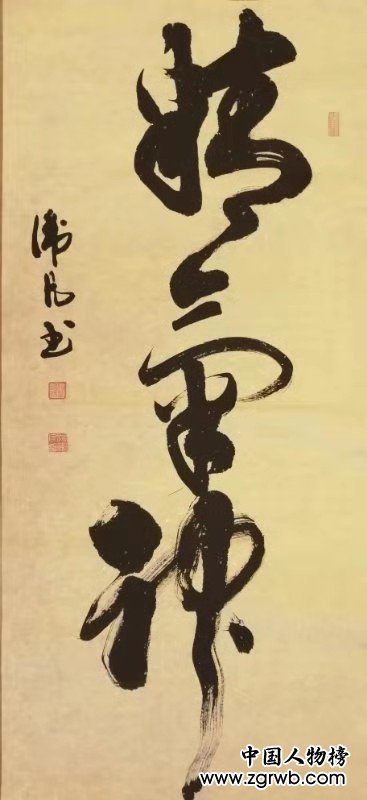 精氣神
衛凡书
中国人物榜
www.zgrwb.com